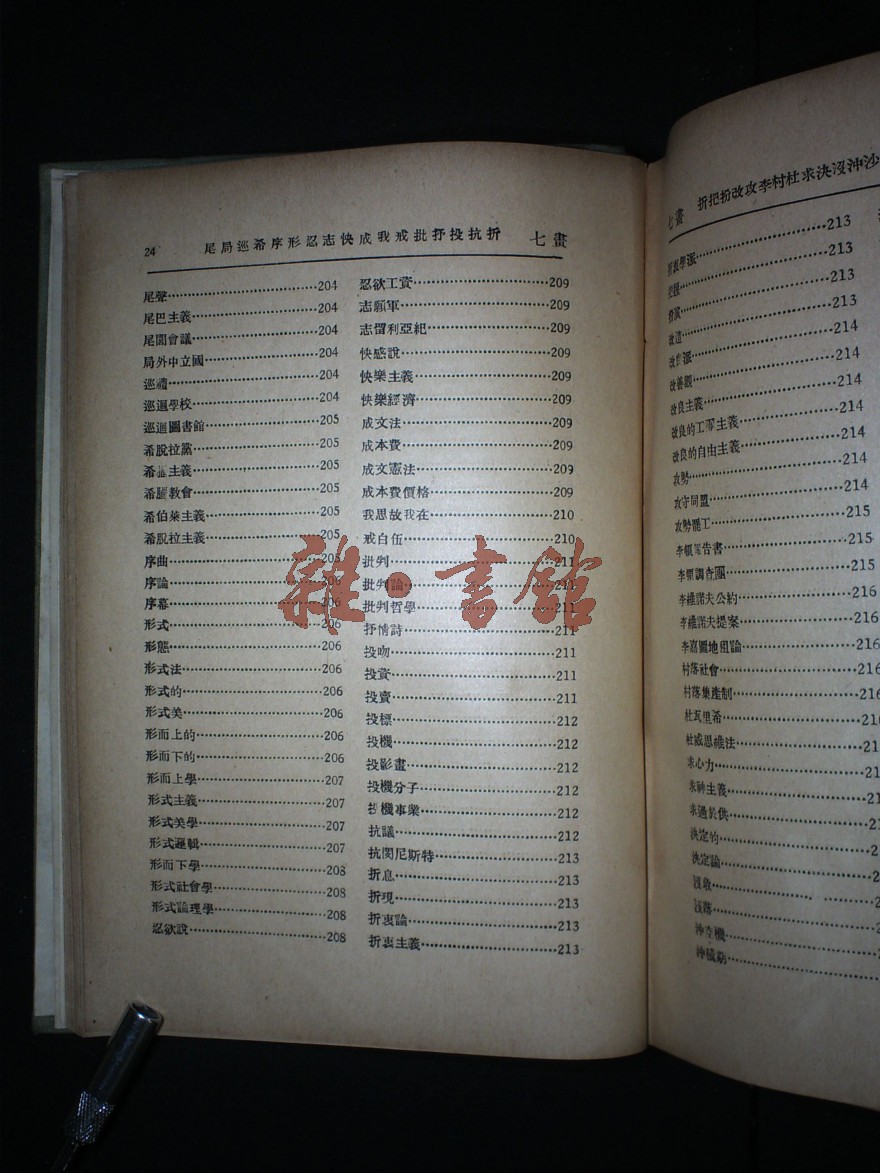 24 尾局巡希序形忍志快成我戒批抒投抗折 七畫
尾聲 204
尾巴主義 204
尾閭會議 204
局外中立國 204
巡禮 204
巡迴學校 204
巡迴圖書館 205
希脫拉黨 205
希 主義 205
希臘教會 205
希伯萊主義 205
希脫拉主義 205
序曲 205
序論 206
序幕 206
形式 206
形態 206
形式法 206
形式的 206
形式美 206
形而上的 206
形而下的 206
形而上學 207
形式主義 207
形式美學 207
形式邏輯 207
形而下學 208
形式社會學 208
形式論理學 208
忍欲說 208
忍欲工資 209
志願軍 209
志留利亞紀 209
快感說 209
快樂主義 209
快樂經濟 209
成文法 209
成本費 209
成文憲法 209
成本費價格 209
我思故我在 210
戒白伍 210
批判 211
批判論 211
批判哲學 211
抒情詩 211
投吻 211
投資 211
投賣 211
投標 212
投機 212
投影畫 212
投機分子 212
投機事業 212
抗議 212
抗閔尼斯特 213
折息 213
折現 213
折衷論 213
折衷主義 213
雜·書館
七畫 折把扮改攻李村杜求決沒沖沙
折衷學派 213
213
213
改造 213
改作派 214
改善觀 214
改良主義 214
改良的工會主義 214
改良的自由主義 214
攻勢 214
攻守同盟 214
攻勢罷工 215
李頓報告書 215
李頓調查團 215
李維諾夫公約 216
李維諾夫提案 216
李嘉圖地租論 216
村落社會 216
村落集產制
杜瓦里希
杜威思維法
求心力
求神主義
求過於供
決定的
決定論
沒收
沒落